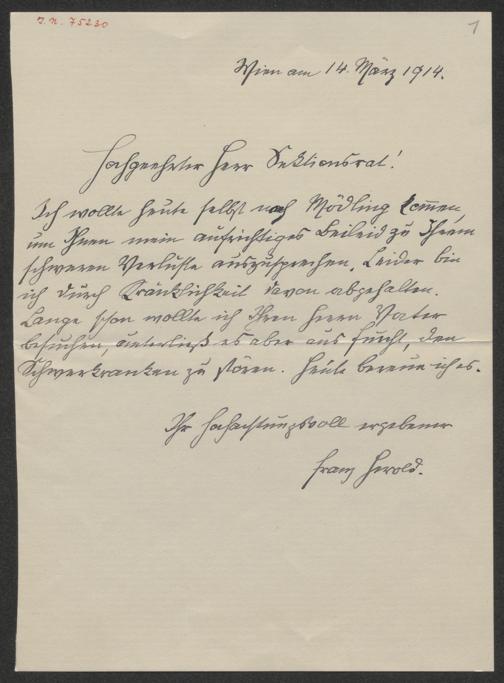 J.N. 75230
1
Wien am 14. März 1914.
Hochgeehrter Herr Sektionsrat!
Ich wollte heute selbst nach Mödling kommen,
um Ihnen mein aufrichtiges Beileid zu Ihrem
schweren Verluste auszusprechen. Leider bin
ich durch Kränklichkeit davon abgehalten.
Lange schon wollte ich Ihren Herrn Vater
besuchen, unterließ es aber aus Furcht, den
Schwerkranken zu stören. Heute bereue ich es.
Ihr hochachtungsvoll ergebener
Franz Herold.